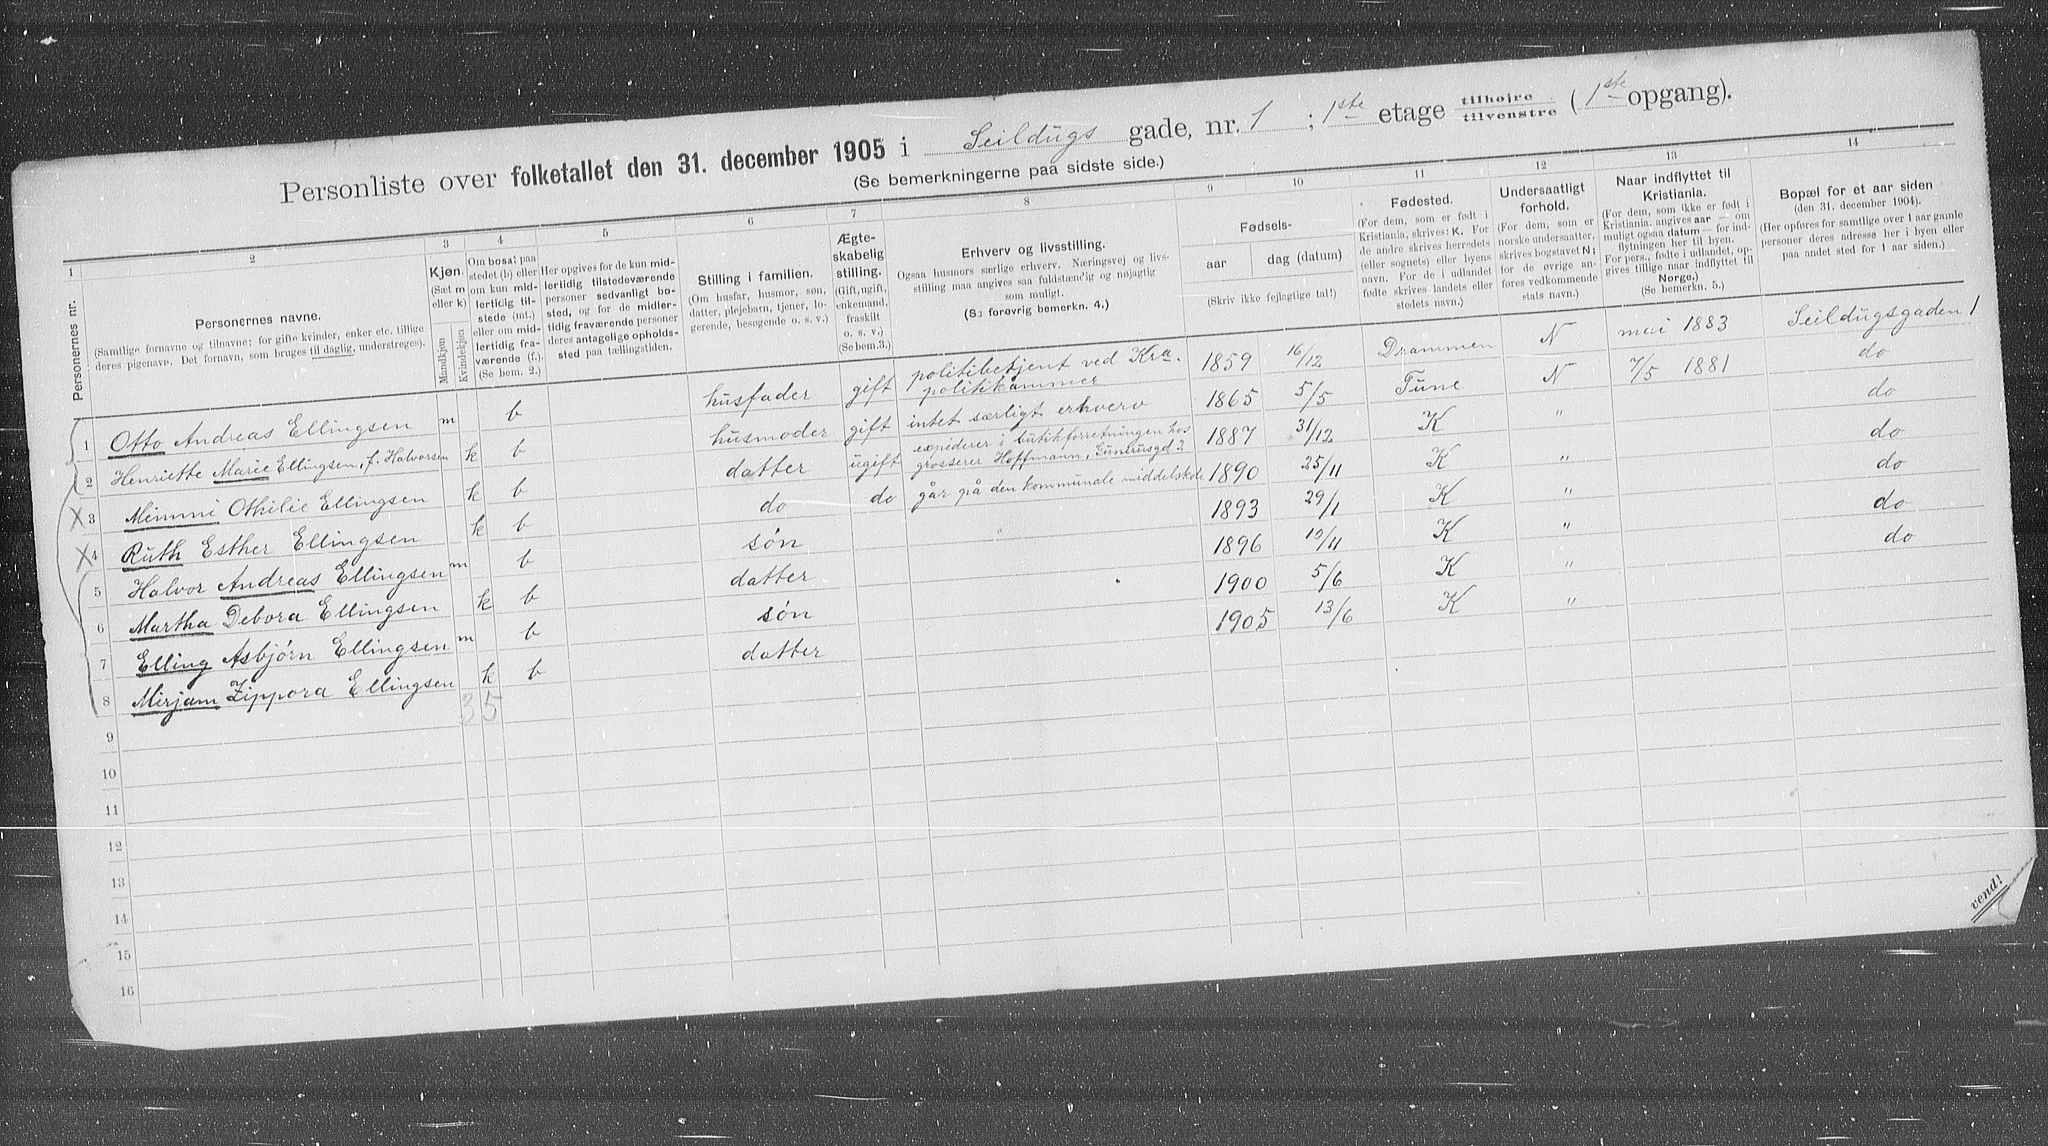 Personliste over folketallet den 31. december 1905 i Seildugs gade, nr. 1 ; 1ste etage tilhøjre tilvenstre (1ste opgang).
(Se bemerkningerne paa sidste side.)
1 2 3 4 5 6 7 8 9 10 11 12 13 14
Personernes nr.
Personernes navne.
(Samtlige fornavne og tilnavne; for gifte kvinder, enker etc. tillige
deres pigenavn. Det fornavn, som bruges til daglig, understreges).
Kjøn.
(Sæt m
eller k)
Mandkjøn
Kvindekjøn
Om bosat paa
stedet (b) eller
om kun mid-
lertidig til-
stede (mt.)
eller om mid-
lertidig fra-
værende (f.).
(Se bem. 2.)
Her opgives for de kun mid-
lertidig tilstedeværende
personer sedvanligt bo-
sted, og for de midler-
tidig fraværende personer
deres antagelige opholds-
sted paa tællingstiden.
Stilling i familien.
(Om husfar, husmor, søn,
datter, plejebarn, tjener, lo-
gerende, besøgende o. s. v.)
Ægte-
skabelig
stilling.
(Gift, ugift,
enkemand,
fraskilt
o. s. v.)
(Se bem. 3.)
Erhverv og livsstilling.
Ogsaa husmors særlige erhverv. Næringsvej og livs-
stilling maa angives saa fuldstændig og nøjagtig
som muligt.
(Se forøvrig bemerkn. 4.)
Fødsels-
aar
dag (datum)
(Skriv ikke fejlagtige tal!)
Fødested.
(For dem, som er født i
Kristiania, skrives: K. For
de andre skrives herredets
(eller sognets) eller byens
navn. For de i udlandet
fødte skrives landets eller
stedets navn.)
Undersaatligt
forhold.
(For dem, som er
norske undersaatter,
skrives bogstavet N;
for de øvrige an-
føres vedkommende
stats navn.)
Naar indflyttet til
Kristiania.
(For dem, som ikke er født i
Kristiania, angives aar — om
muligt ogsaa datum — for ind-
flytningen her til byen.
For pers., fødte i udlandet, op-
gives tillige naar indflyttet til
Norge.)
(Se bemerkn. 5.)
Bopæl for et aar siden
(den 31. december 1904).
(Her opføres for samtlige over 1 aar gamle
personer deres adresse her i byen eller
paa andet sted for 1 aar siden.)
1 Otto Andreas Ellingsen m b husfader gift politibetjent ved Kra. politikammer 1859 16/12 Drammen N mai 1883 Seildugsgaden 1
2 Henriette Marie Ellingsen, f. Halvorsen k b husmoder gift intet særligt erhverv 1865 5/5 Tune N 7/5 1881 do
3 Mimmi Othilie Ellingsen k b datter ugift expiderer i butikforretningen hos grosserer Hoffmann, 1887 31/12 K " do
4 Ruth Esther Ellingsen k b do do går på den kommunale middelskole 1890 25/11 K " do
5 Halvor Andreas Ellingsen m b søn 1893 29/1 K " do
6 Martha Debora Ellingsen k b datter 1896 10/11 K " do
7 Elling Asbjørn Ellingsen m b søn 1900 5/6 K " do
8 Mirjam Zippora Ellingsen k b datter 1905 13/6 K "
3 5
9
10
11
12
13
14
15
16
vend!